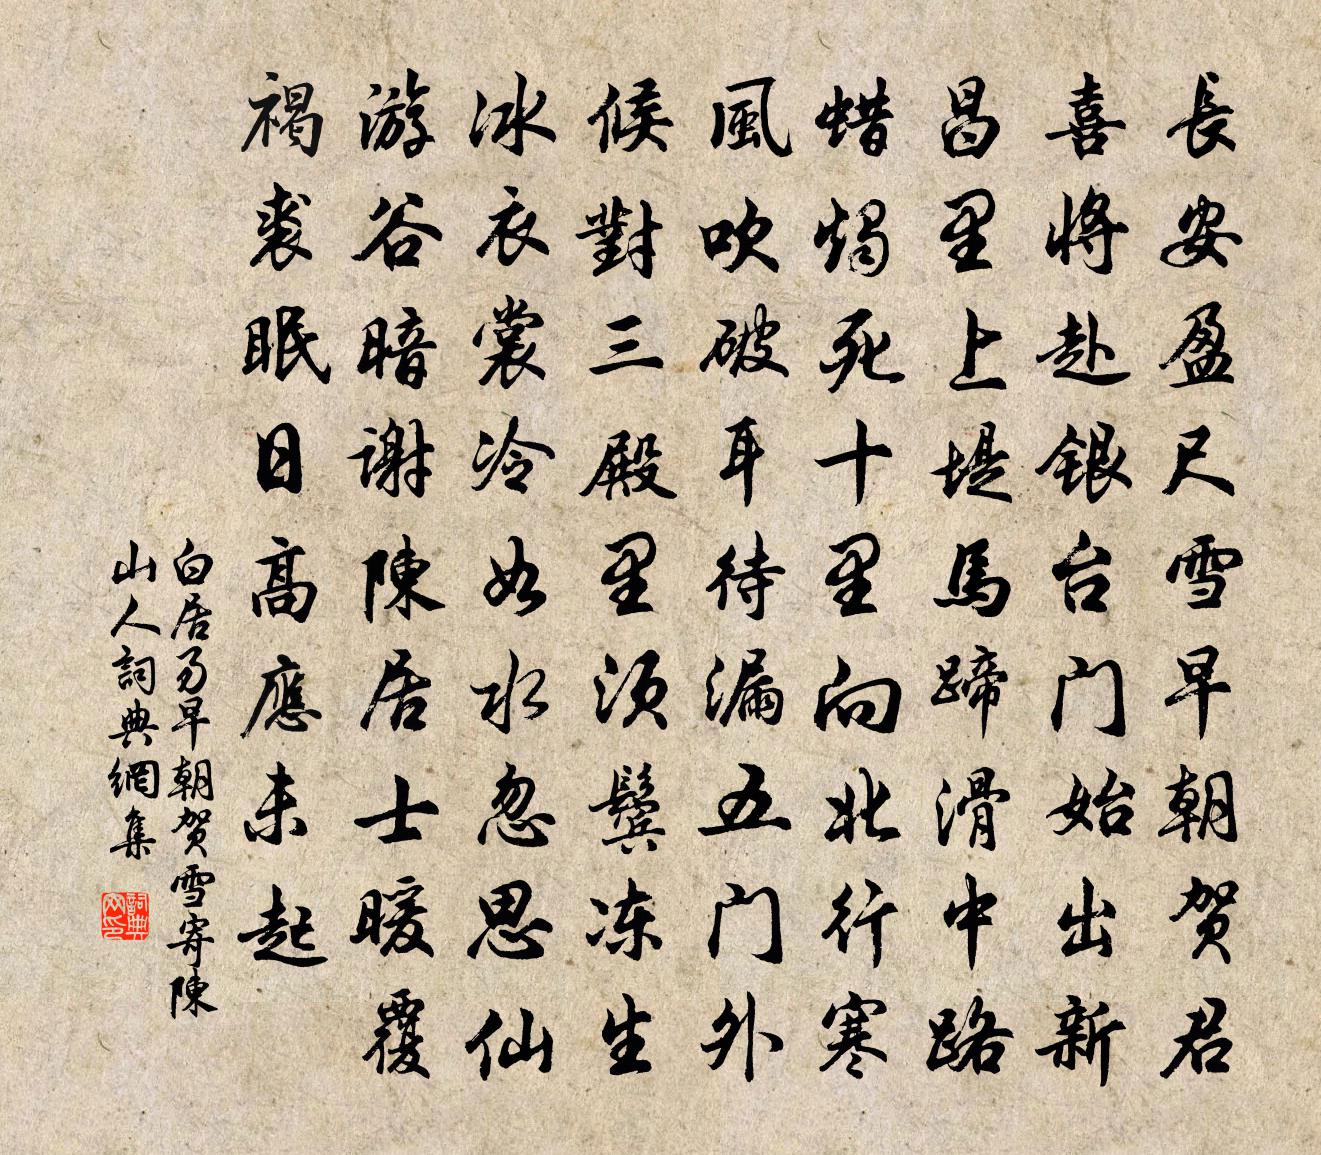 長安盈尺雪早朝贺君
喜將赴銀台门始出新
昌里上堤馬蹄滑中路
蜡燭死十里向北行寒
風吹破耳待漏五门外
候對三殿里须鬓冻生
冰衣裳冷如水忽思仙
游谷暗謝陳居士暖覆
褐裘眠日高應未起
白居易早朝贺雪寄陳
山人詞典網集
詞典网印